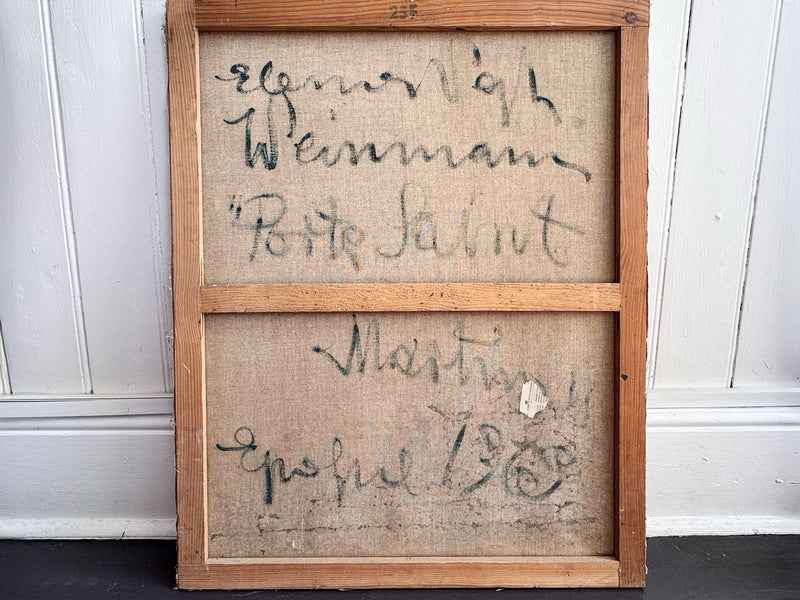 235
Elemer Vagh
Weinmann
"Porte Saint
Martin"
Epoque 1960